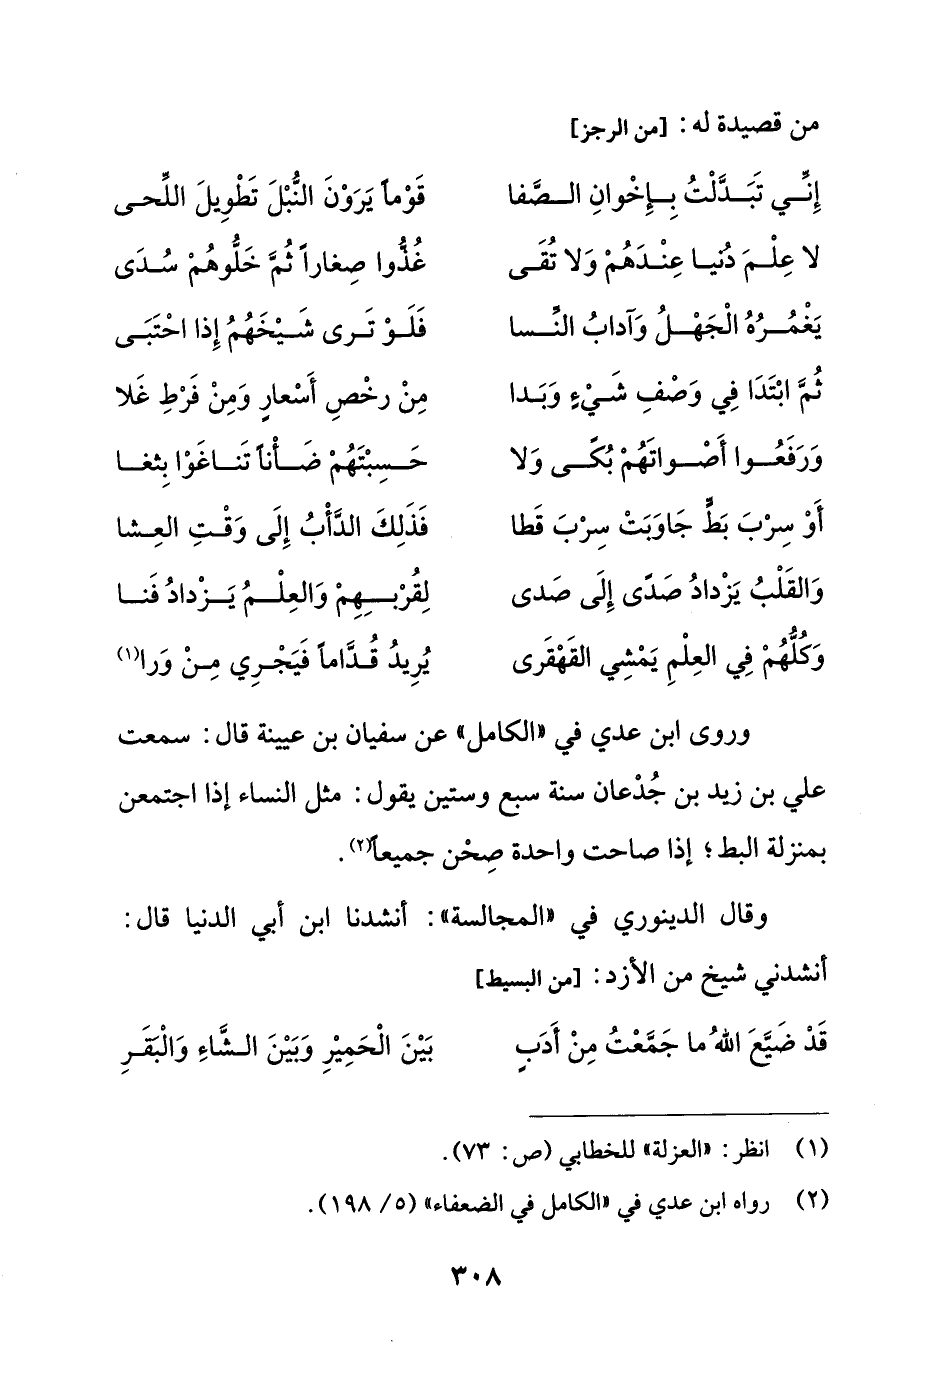 من قصيدة له : [من الرجز]
إِنِّي تَبَدَّلْتُ بِإِخْوانِ الصَّفا قَوْماً يَرَوْنَ النُّبْلَ تَطْوِيلَ اللِّحى
لا عِلْمَ دُنيا عِنْدَهُمْ وَلا تُقَى غُذُّوا صِغاراً ثُمَّ خَلُّوهُمْ سُدَى
يَغْمُرُهُ الْجَهْلُ وَآدابُ النِّسا فَلَوْ تَرى شَيْخَهُمُ إِذا احْتَبَى
ثُمَّ ابْتَدَا فِي وَصْفِ شَيْءٍ وَبَدا مِنْ رخْصِ أَسْعارٍ وَمِنْ فَرْطِ غَلا
وَرَفَعُوا أَصْواتَهُمْ بُكًى وَلا حَسِبْتَهُمْ ضَأْناً تَناغَوْا بِثغا
أَوْ سِرْبَ بَطٍّ جَاوَبَتْ سِرْبَ قَطا فَذَلِكَ الدَّأْبُ إِلَى وَقْتِ العِشا
وَالقَلْبُ يَزْدادُ صَدًى إِلَى صَدى لِقُرْبِهِمْ وَالعِلْمُ يَزْدادُ فَنا
وَكُلُّهُمْ فِي العِلْمِ يَمْشِي القَهْقَرى يُرِيدُ قُدَّاماً فَيَجْرِي مِنْ وَرا(١)
وروى ابن عدي في «الكامل» عن سفيان بن عيينة قال : سمعت
علي بن زيد بن جُدْعان سنة سبع وستين يقول : مثل النساء إذا اجتمعن
بمنزلة البط ؛ إذا صاحت واحدة صِحْن جميعاً(٢).
وقال الدينوري في «المجالسة» : أنشدنا ابن أبي الدنيا قال :
أنشدني شيخ من الأزد : [من البسيط]
قَدْ ضَيَّعَ اللهُ ما جَمَّعْتُ مِنْ أَدَبٍ بَيْنَ الْحَمِيْرِ وَبَيْنَ الشَّاءِ وَالْبَقَرِ
(١) انظر : «العزلة» للخطابي (ص : ٧٣).
(٢) رواه ابن عدي في «الكامل في الضعفاء» (٥/ ١٩٨).
٣٠٨